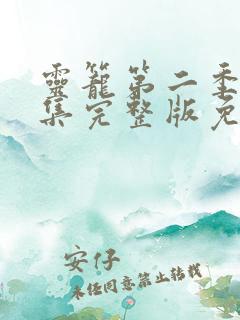 靈籠第二季
集完整版免
安仔
未经同意禁止转载